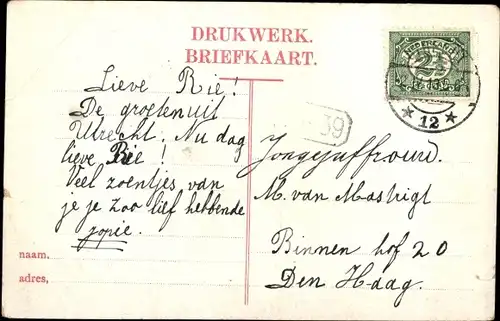 DRUKWERK.
BRIEFKAART.
Lieve Rie!
De groeten uit
Utrecht. Nu dag
lieve Rie!
Veel zoentjes van
je je zoo lief hebbende
Jopie.
naam.
adres,
39
NEDERLAND
2½
12
Jongejuffrouw.
M. van Mastrigt
Binnen hof 20
Den Haag.